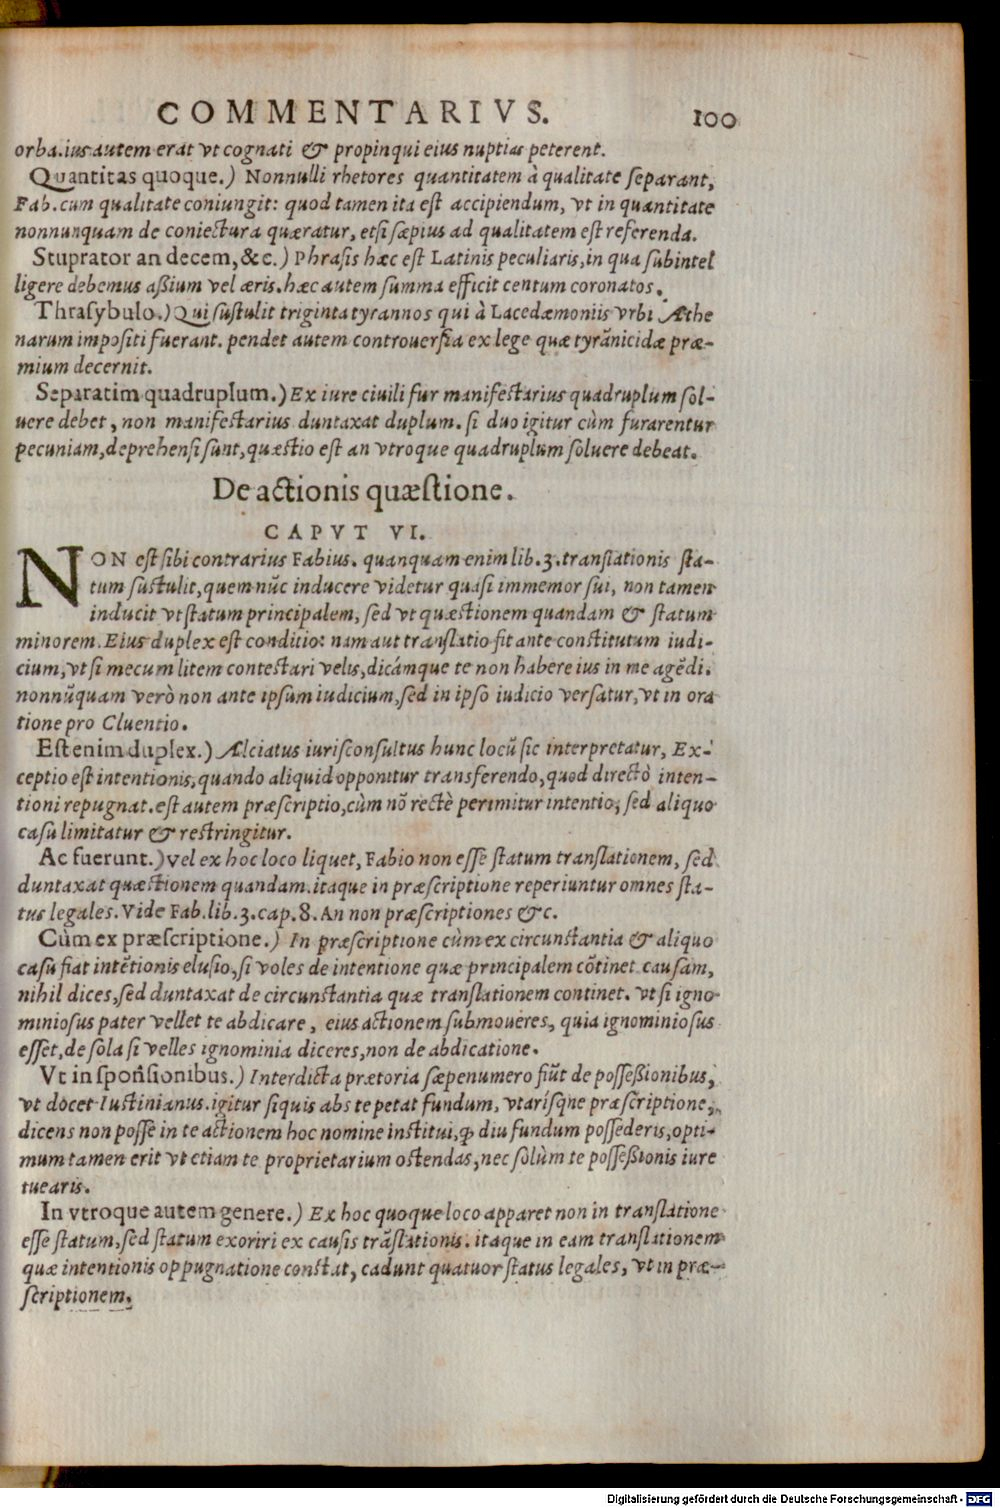 COMMENTARIVS. 100
orba. ius autem erat vt cognati & propinqui eius nuptias peterent.
Quantitas quoque.) Nonnulli rhetores quantitatem à qualitate separant,
Fab. cum qualitate coniungit: quod tamen ita est accipiendum, vt in quantitate
nonnunquam de coniectura quæratur, etsi sæpius ad qualitatem est referenda.
Stuprator an decem, &c.) Phrasis hæc est Latinis peculiaris, in qua subintel
ligere debemus aßium vel æris. hæc autem summa efficit centum coronatos.
Thrasybulo.) Qui sustulit triginta tyrannos qui à Lacedæmoniis vrbi Athe
narum impositi fuerant. pendet autem controuersia ex lege quæ tyrãnicidæ præ-
mium decernit.
Separatim quadruplum.) Ex iure ciuili fur manifestarius quadruplum sol-
uere debet, non manifestarius duntaxat duplum. si duo igitur cùm furarentur
pecuniam, deprehensi sunt, quæstio est an vtroque quadruplum soluere debeat.
De actionis quæstione.
CAPVT VI.
NON est sibi contrarius Fabius. quanquam enim lib. 3. translationis sta-
tum sustulit, quem nũc inducere videtur quasi immemor sui, non tamen
inducit vt statum principalem, sed vt quæstionem quandam & statum
minorem. Eius duplex est conditio: nam aut translatio fit ante constitutum iudi-
cium, vt si mecum litem contestari velis, dicámque te non habere ius in me agẽdi.
nonnũquam verò non ante ipsum iudicium, sed in ipso iudicio versatur, vt in ora
tione pro Cluentio.
Est enim duplex.) Alciatus iurisconsultus hunc locũ sic interpretatur, Ex-
ceptio est intentionis, quando aliquid opponitur transferendo, quod directò inten-
tioni repugnat. est autem præscriptio, cùm nõ rectè perimitur intentio, sed aliquo
casu limitatur & restringitur.
Ac fuerunt.) vel ex hoc loco liquet, Fabio non esse statum translationem, sed
duntaxat quæstionem quandam. itaque in præscriptione reperiuntur omnes sta-
tus legales. Vide Fab. lib. 3. cap. 8. An non præscriptiones &c.
Cùm ex præscriptione.) In præscriptione cùm ex circunstantia & aliquo
casu fiat intẽtionis elusio, si voles de intentione quæ principalem cõtinet causam,
nihil dices, sed duntaxat de circunstantia quæ translationem continet. vt si igno-
miniosus pater vellet te abdicare, eius actionem submoueres, quia ignominiosus
esset, de sola si velles ignominia diceres, non de abdicatione.
Vt in sponsionibus.) Interdicta prætoria sæpenumero fiũt de possessionibus,
vt docet Iustinianus. igitur siquis abs te petat fundum, vtarísque præscriptione,
dicens non posse in te actionem hoc nomine institui, ꝙ diu fundum possederis, opti-
mum tamen erit vt etiam te proprietarium ostendas, nec solùm te posseßionis iure
tuearis.
In vtroque autem genere.) Ex hoc quoque loco apparet non in translatione
esse statum, sed statum exoriri ex causis trãslationis. itaque in eam translationem
quæ intentionis oppugnatione constat, cadunt quatuor status legales, vt in præ-
scriptionem.
Digitalisierung gefördert durch die Deutsche Forschungsgemeinschaft - DFG